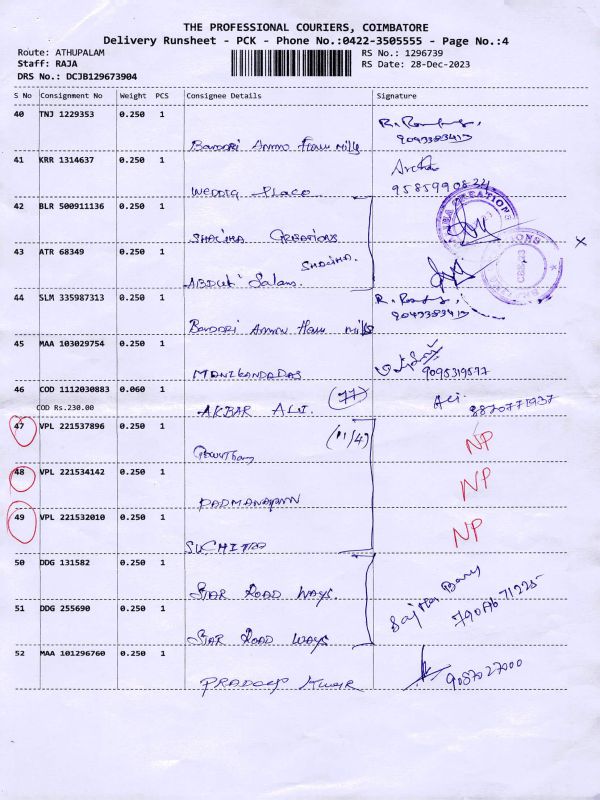 THE PROFESSIONAL COURIERS, COIMBATORE
Delivery Runsheet - PCK - Phone No.:0422-3505555 - Page No.:4
Route: ATHUPALAM RS No.: 1296739
Staff: RAJA RS Date: 28-Dec-2023
DRS No.: DCJB129673904
S No Consignment No Weight PCS Consignee Details Signature
40 TNJ 1229353 0.250 1
9043383413
41 KRR 1314637 0.250 1
WEDDIG PLACE
42 BLR 500911136 0.250 1
CREATIONS
43 ATR 68349 0.250 1
Salam
44 SLM 335987313 0.250 1
9043383413
45 MAA 103029754 0.250 1
MANIKANDADAS 9095319577
46 COD 1112030883 0.060 1
COD Rs.230.00 AKBAR ALI. (77) Ali
47 VPL 221537896 0.250 1 (11/4) NP
48 VPL 221534142 0.250 1 NP
49 VPL 221532010 0.250 1 NP
SUCHITRA
50 DDG 131582 0.250 1
STAR ROAD WAYS.
51 DDG 255690 0.250 1
STAR ROAD WAYS
52 MAA 101296760 0.250 1
PRADEEP KUMAR 9087027000